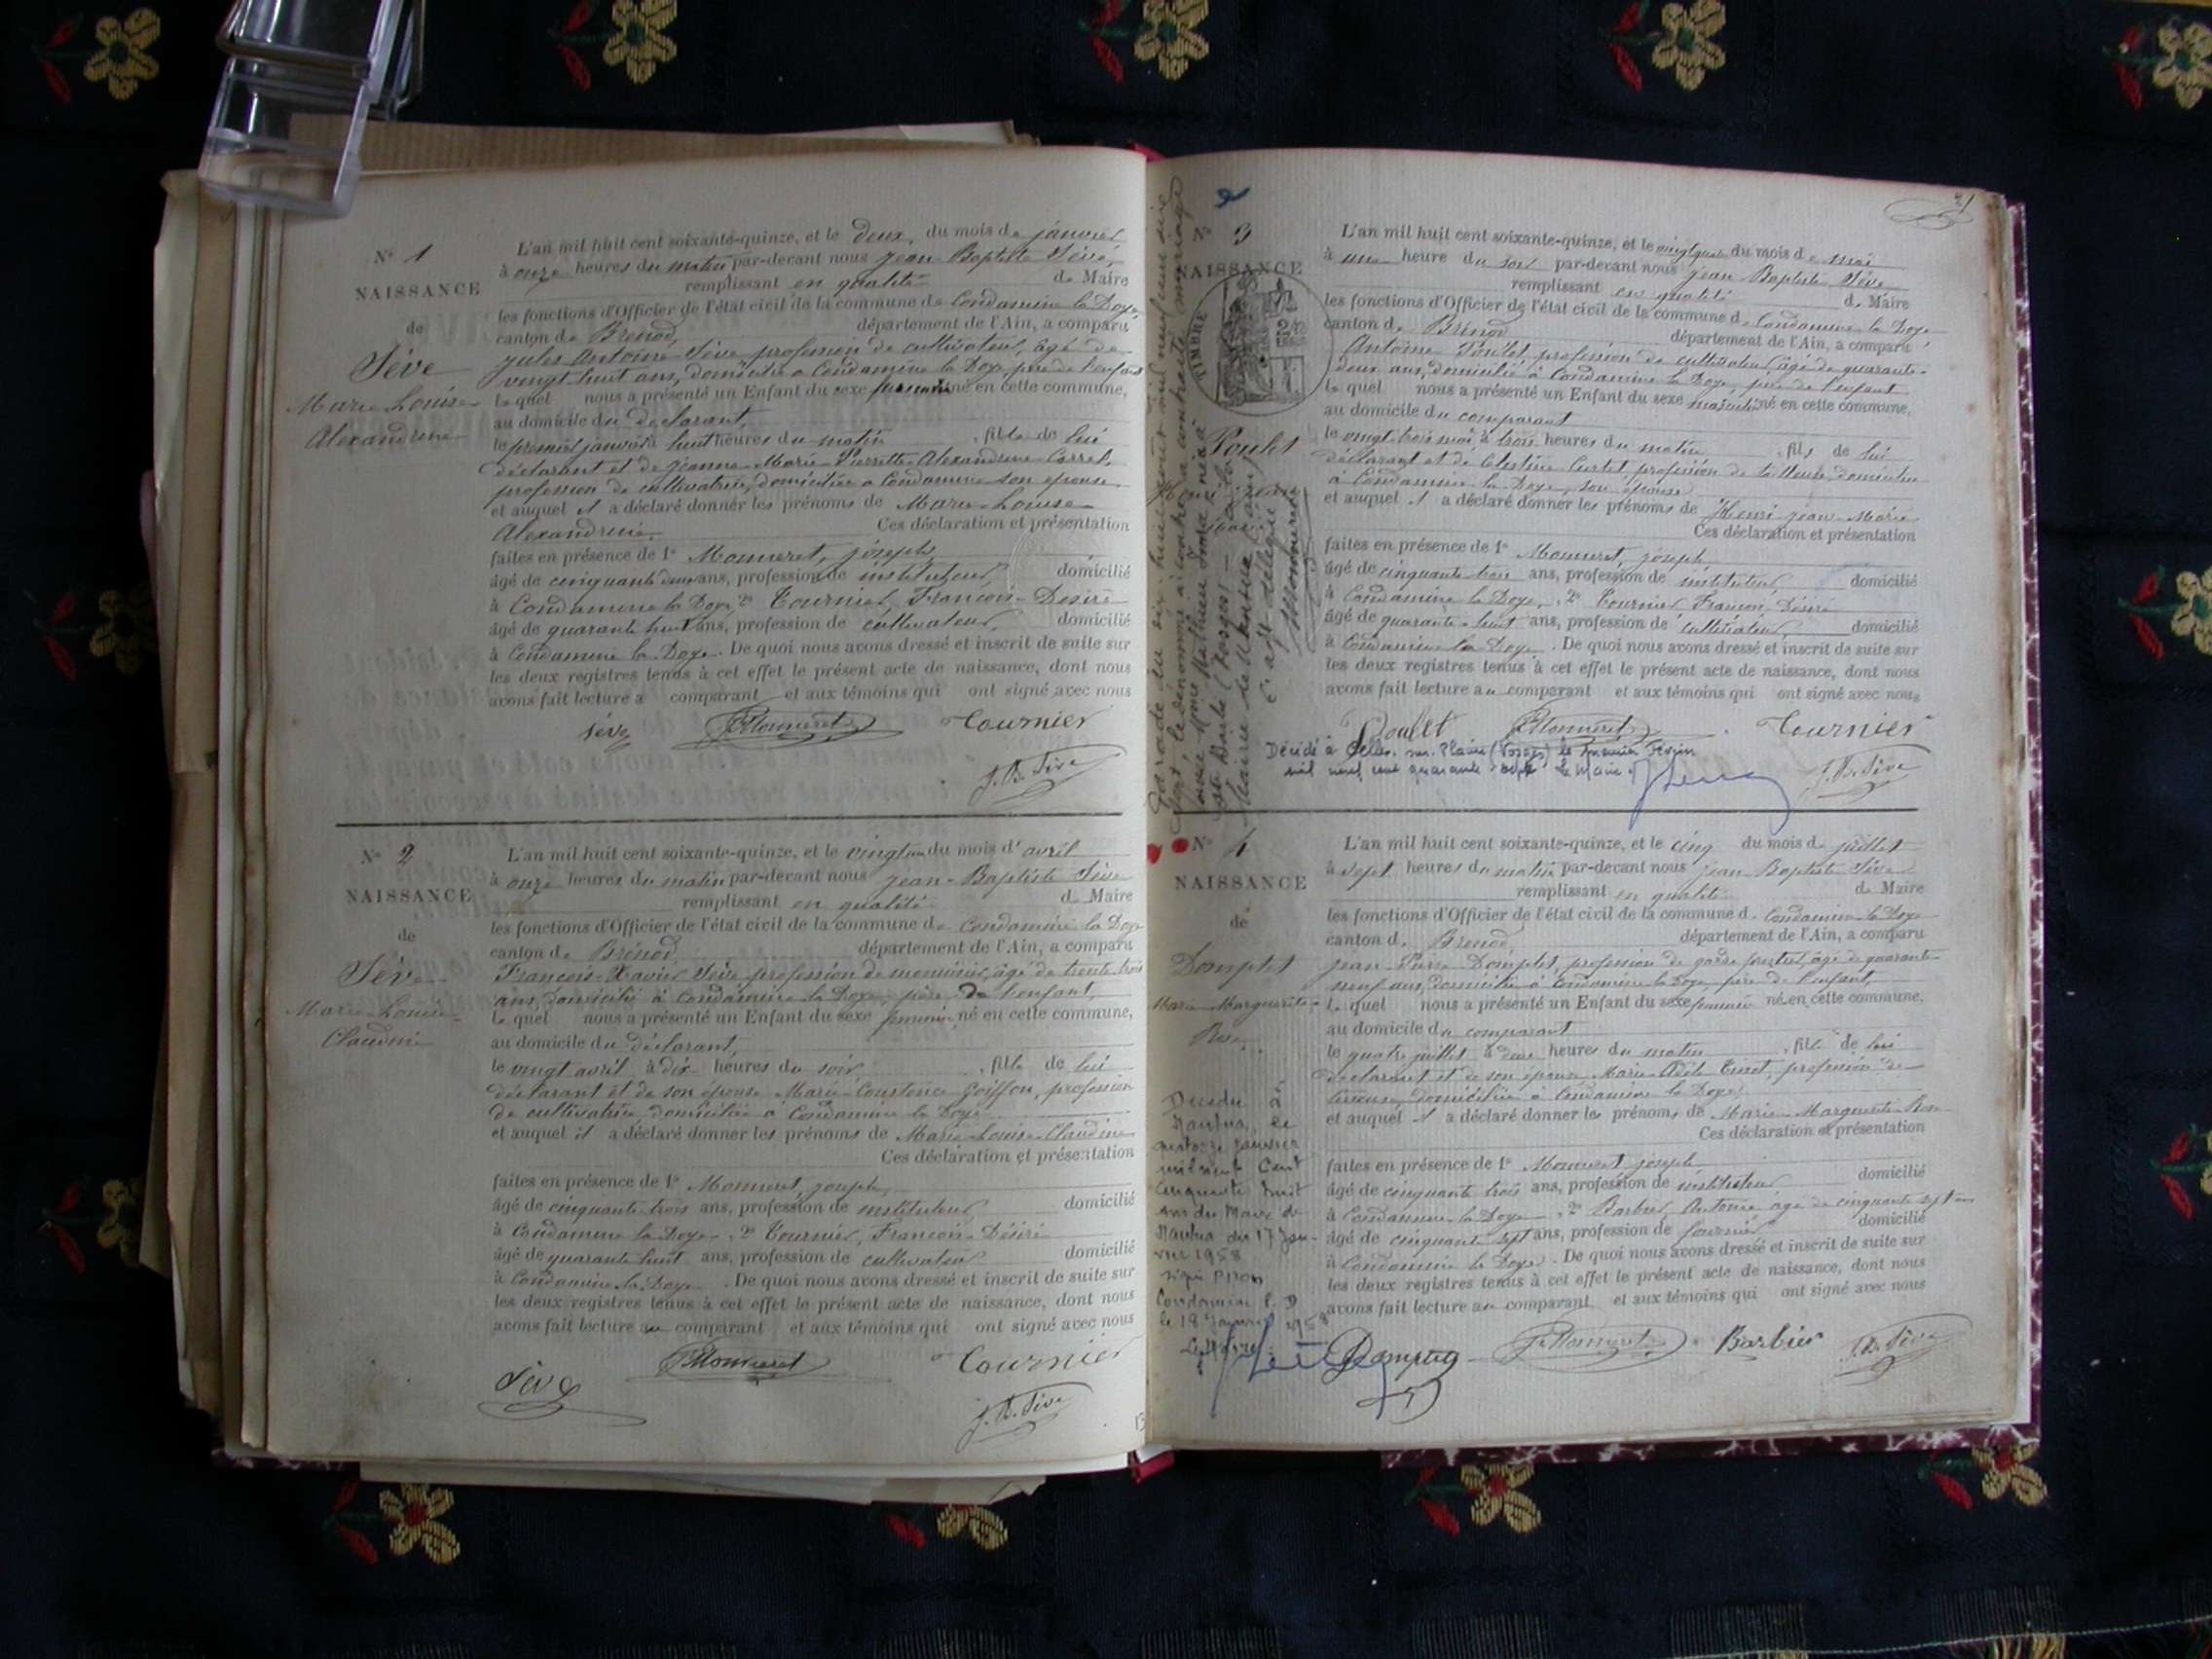 N° 1
NAISSANCE
de
Sève
Marie Louise
Alexandrine
L'an mil huit cent soixante-quinze, et le deux, du mois de janvier
à onze heures du matin par-devant nous Jean-Baptiste Sève,
remplissant en qualité de Maire
les fonctions d'Officier de l'état civil de la commune de Condamine la Doye
canton de Brénod, département de l'Ain, a comparu
Jules Antoine Sève profession de cultivateur, âgé de
vingt huit ans, domicilié à Condamine la Doye, père de l'enfant
Le quel nous a présenté un Enfant du sexe féminin né en cette commune,
au domicile du déclarant,
le premier janvier à huit heures du matin, fille de lui
déclarant et de Jeanne-Marie Pierrette Alexandrine Carrel,
profession de cultivatrice, domiciliée à Condamine son épouse
et auquel il a déclaré donner les prénoms de Marie-Louise
Alexandrine. Ces déclaration et présentation
faites en présence de 1° Monneret, joseph,
âgé de cinquante deux ans, profession de instituteur, domicilié
à Condamine la Doye, 2° Tournier, François-Désiré
âgé de quarante huit ans, profession de cultivateur, domicilié
à Condamine la Doye. De quoi nous avons dressé et inscrit de suite sur
les deux registres tenus à cet effet le présent acte de naissance, dont nous
avons fait lecture a comparant et aux témoins qui ont signé avec nous
Sève Monneret Tournier
J. B. Sève
N° 2
NAISSANCE
de
Sève
Marie-Louise
Claudine
L'an mil huit cent soixante-quinze, et le vingt un du mois d'avril
à onze heures du matin par-devant nous Jean-Baptiste Sève
remplissant en qualité de Maire
les fonctions d'Officier de l'état civil de la commune de Condamine la Doye
canton de Brénod, département de l'Ain, a comparu
François-Xavier Sève profession de menuisier, âgé de trente-trois
ans, domicilié à Condamine la Doye, père de l'enfant,
Le quel nous a présenté un Enfant du sexe féminin, né en cette commune,
au domicile du déclarant,
le vingt avril à dix heures du soir, fille de lui
déclarant et de son épouse Marie-Constance Goiffon, profession
de cultivatrice domiciliée à Condamine la Doye
et auquel il a déclaré donner les prénoms de Marie-Louise-Claudine
Ces déclaration et présentation
faites en présence de 1° Monneret, joseph,
âgé de cinquante trois ans, profession de instituteur domicilié
à Condamine la Doye, 2° Tournier, François-Désiré
âgé de quarante huit ans, profession de cultivateur domicilié
à Condamine la Doye. De quoi nous avons dressé et inscrit de suite sur
les deux registres tenus à cet effet le présent acte de naissance, dont nous
avons fait lecture au comparant et aux témoins qui ont signé avec nous
Sève Monneret Tournier
J. B. Sève
N° 3
NAISSANCE
TIMBRE
Poulet
L'an mil huit cent soixante-quinze, et le vingt quatre du mois de mai
à une heure du soir par-devant nous Jean Baptiste Sève
remplissant en qualité de Maire
les fonctions d'Officier de l'état civil de la commune de Condamine la Doye,
canton de Brénod département de l'Ain, a comparu
Antoine Poulet, profession de cultivateur, âgé de quarante-
deux ans, domicilié à Condamine la Doye, père de l'enfant
Le quel nous a présenté un Enfant du sexe masculin né en cette commune,
au domicile du comparant
le vingt-trois mai, à trois heures du matin, fils de lui
déclarant et de Célestine Curtet profession de tailleuse, domiciliée
à Condamine la Doye, son épouse
et auquel il a déclaré donner les prénoms de Henri-Jean-Marie
Ces déclaration et présentation
faites en présence de 1° Monneret, joseph
âgé de cinquante-trois ans, profession de instituteur, domicilié
à Condamine la Doye, 2° Tournier François Désiré
âgé de quarante-huit ans, profession de cultivateur, domicilié
à Condamine la Doye. De quoi nous avons dressé et inscrit de suite sur
les deux registres tenus à cet effet le présent acte de naissance, dont nous
avons fait lecture au comparant et aux témoins qui ont signé avec nous
Poulet Monneret Tournier
Décédé à Celles-sur-Plaine (Vosges) le premier Février
mil neuf cent quarante sept. Le Maire
J. B. Sève
N° 4
NAISSANCE
de
Domplet
Marie-Marguerite
Rose
Décédée à
Nantua, le
quatorze janvier
mil neuf Cent
Cinquante huit
avis du Maire de
Nantua du 17 Jan-
vier 1958
signé
Condamine l. D
le 18 Janvier 1958
Le Maire
L'an mil huit cent soixante-quinze, et le cinq du mois de juillet
à sept heures du matin par-devant nous Jean-Baptiste Sève
remplissant en qualité de Maire
les fonctions d'Officier de l'état civil de la commune de Condamine la Doye
canton de Brénod, département de l'Ain, a comparu
Jean-Pierre Domplet, profession de garde forestier, âgé de quarante-
neuf ans, domicilié à Condamine la Doye, père de l'enfant,
Le quel nous a présenté un Enfant du sexe féminin né en cette commune,
au domicile du comparant
le quatre juillet à deux heures du matin, fille de lui
déclarant et de son épouse Marie Adèle profession de
domiciliée à Condamine la Doye,
et auquel il a déclaré donner les prénoms de Marie-Marguerite-Rose
Ces déclaration et présentation
faites en présence de 1° Monneret, joseph
âgé de cinquante trois ans, profession de instituteur domicilié
à Condamine la Doye, 2° Barbier, Antoine âgé de cinquante sept ans
âgé de cinquante sept ans, profession de domicilié
à Condamine la Doye. De quoi nous avons dressé et inscrit de suite sur
les deux registres tenus à cet effet le présent acte de naissance, dont nous
avons fait lecture au comparant et aux témoins qui ont signé avec nous
Monneret Barbier J. B. Sève